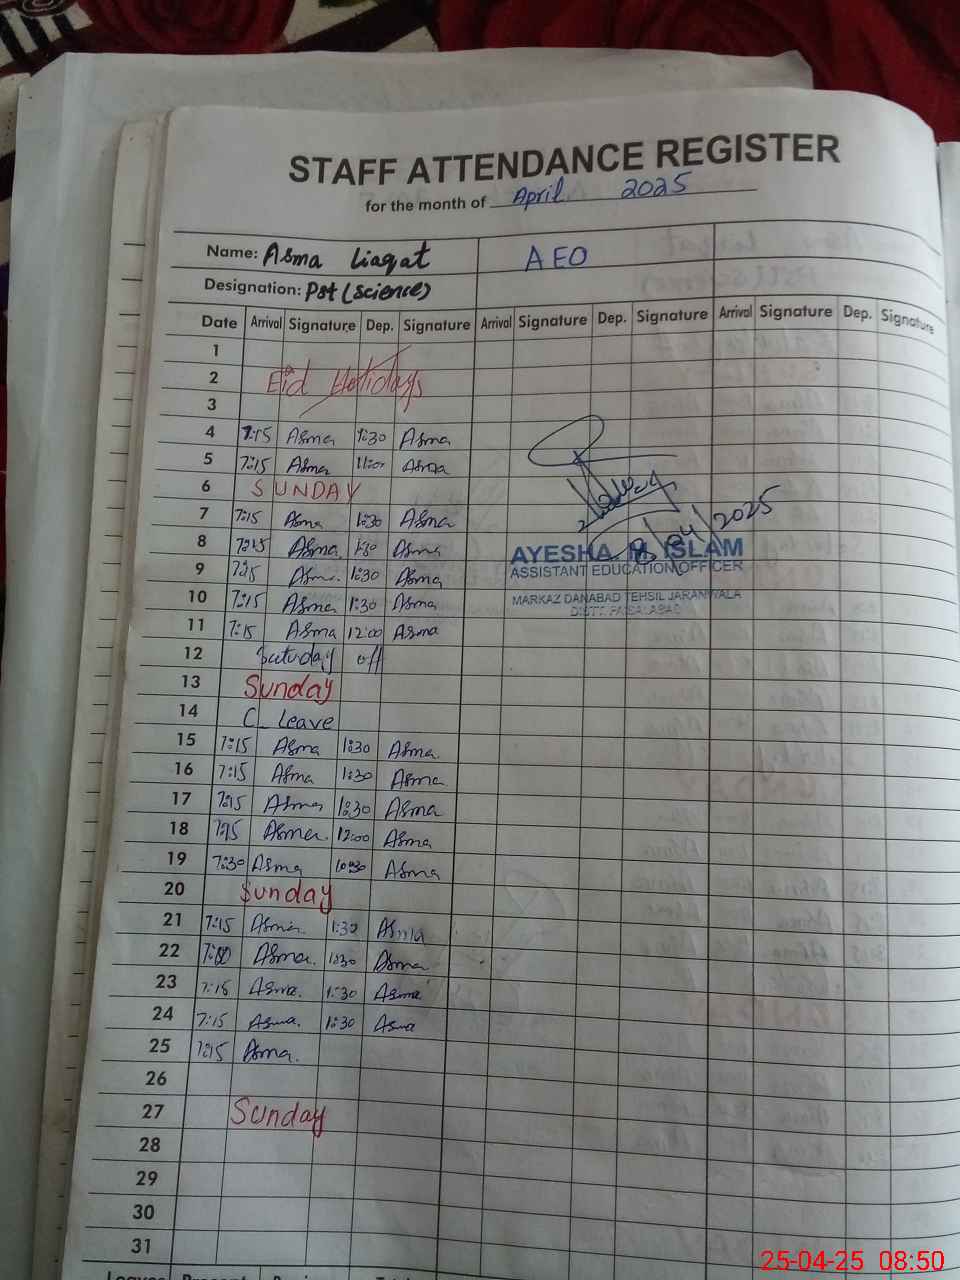 STAFF ATTENDANCE REGISTER
for the month of April 2025
Name: Asma Liaqat AEO
Designation: Pst (Science)
Date Arrival Signature Dep. Signature Arrival Signature Dep. Signature Arrival Signature Dep. Signature
1
2 Eid Holidays
3
4 7:15 Asma 1:30 Asma
5 7:15 Asma 11:00 Asma
6 SUNDAY
7 7:15 Asma 1:30 Asma
8/04/2025
8 7:15 Asma 1:30 Asma
AYESHA ISLAM
9 7:15 Asma. 1:30 Asma
ASSISTANT EDUCATION OFFICER
10 7:15 Asma 1:30 Asma
MARKAZ DANABAD TEHSIL JARANWALA
DISTT. FAISALABAD
11 7:15 Asma 12:00 Asma
12 Saturday off
13 Sunday
14 C_ leave
15 7:15 Asma 1:30 Asma.
16 7:15 Asma 1:30 Asma
17 7:15 Asma 1:30 Asma
18 7:15 Asma. 12:00 Asma
19 7:30 Asma 10:30 Asma
20 Sunday
21 7:15 Asma. 1:30 Asma
22 Asma. 1:30 Asma
23 7:15 Asma. 1:30 Asma
24 7:15 Asma. 1:30 Asma
25 7:15 Asma.
26
27 Sunday
28
29
30
31
25-04-25 08:50